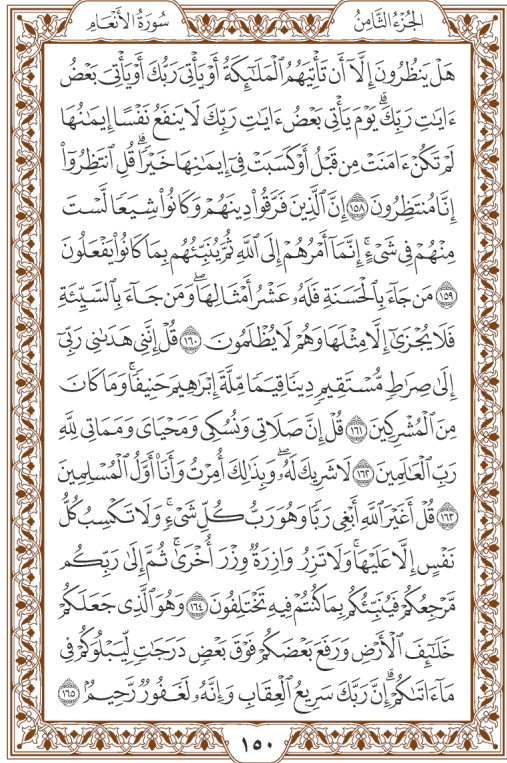 الجزء الثامن
سورة الأنعام
هَلْ يَنظُرُونَ إِلَّآ أَن تَأْتِيَهُمُ ٱلْمَلَٰٓئِكَةُ أَوْ يَأْتِىَ رَبُّكَ أَوْ يَأْتِىَ بَعْضُ
ءَايَٰتِ رَبِّكَۗ يَوْمَ يَأْتِى بَعْضُ ءَايَٰتِ رَبِّكَ لَا يَنفَعُ نَفْسًا إِيمَٰنُهَا
لَمْ تَكُنْ ءَامَنَتْ مِن قَبْلُ أَوْ كَسَبَتْ فِىٓ إِيمَٰنِهَا خَيْرًاۗ قُلِ ٱنتَظِرُوٓا۟
إِنَّا مُنتَظِرُونَ ١٥٨ إِنَّ ٱلَّذِينَ فَرَّقُوا۟ دِينَهُمْ وَكَانُوا۟ شِيَعًا لَّسْتَ
مِنْهُمْ فِى شَىْءٍۚ إِنَّمَآ أَمْرُهُمْ إِلَى ٱللَّهِ ثُمَّ يُنَبِّئُهُم بِمَا كَانُوا۟ يَفْعَلُونَ
١٥٩ مَن جَآءَ بِٱلْحَسَنَةِ فَلَهُۥ عَشْرُ أَمْثَالِهَاۖ وَمَن جَآءَ بِٱلسَّيِّئَةِ
فَلَا يُجْزَىٰٓ إِلَّا مِثْلَهَا وَهُمْ لَا يُظْلَمُونَ ١٦٠ قُلْ إِنَّنِى هَدَىٰنِى رَبِّىٓ
إِلَىٰ صِرَٰطٍ مُّسْتَقِيمٍ دِينًا قِيَمًا مِّلَّةَ إِبْرَٰهِيمَ حَنِيفًاۚ وَمَا كَانَ
مِنَ ٱلْمُشْرِكِينَ ١٦١ قُلْ إِنَّ صَلَاتِى وَنُسُكِى وَمَحْيَاىَ وَمَمَاتِى لِلَّهِ
رَبِّ ٱلْعَٰلَمِينَ ١٦٢ لَا شَرِيكَ لَهُۥۖ وَبِذَٰلِكَ أُمِرْتُ وَأَنَا۠ أَوَّلُ ٱلْمُسْلِمِينَ
١٦٣ قُلْ أَغَيْرَ ٱللَّهِ أَبْغِى رَبًّا وَهُوَ رَبُّ كُلِّ شَىْءٍۚ وَلَا تَكْسِبُ كُلُّ
نَفْسٍ إِلَّا عَلَيْهَاۚ وَلَا تَزِرُ وَازِرَةٌ وِزْرَ أُخْرَىٰۚ ثُمَّ إِلَىٰ رَبِّكُم
مَّرْجِعُكُمْ فَيُنَبِّئُكُم بِمَا كُنتُمْ فِيهِ تَخْتَلِفُونَ ١٦٤ وَهُوَ ٱلَّذِى جَعَلَكُمْ
خَلَٰٓئِفَ ٱلْأَرْضِ وَرَفَعَ بَعْضَكُمْ فَوْقَ بَعْضٍ دَرَجَٰتٍ لِّيَبْلُوَكُمْ فِى
مَآ ءَاتَىٰكُمْۗ إِنَّ رَبَّكَ سَرِيعُ ٱلْعِقَابِ وَإِنَّهُۥ لَغَفُورٌ رَّحِيمٌۢ ١٦٥
١٥٠